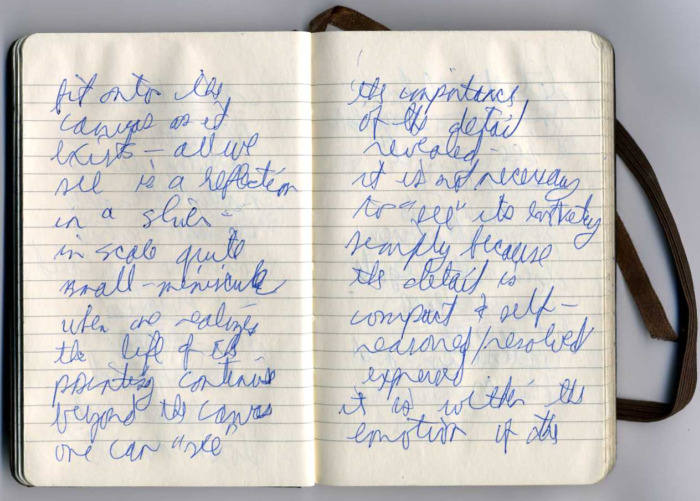 fit onto the
canvas as it
exists – all we
see is a reflection
in a
in scale quite
small – miniscule
when one realizes
the life of the
painting continues
beyond the canvas
one can "see"
the importance
of the detail
revealed –
it is not necessary
to "see" its entirety
simply because
the detail is
compact & self–
reasoned/resolved
it is within the
emotion of this